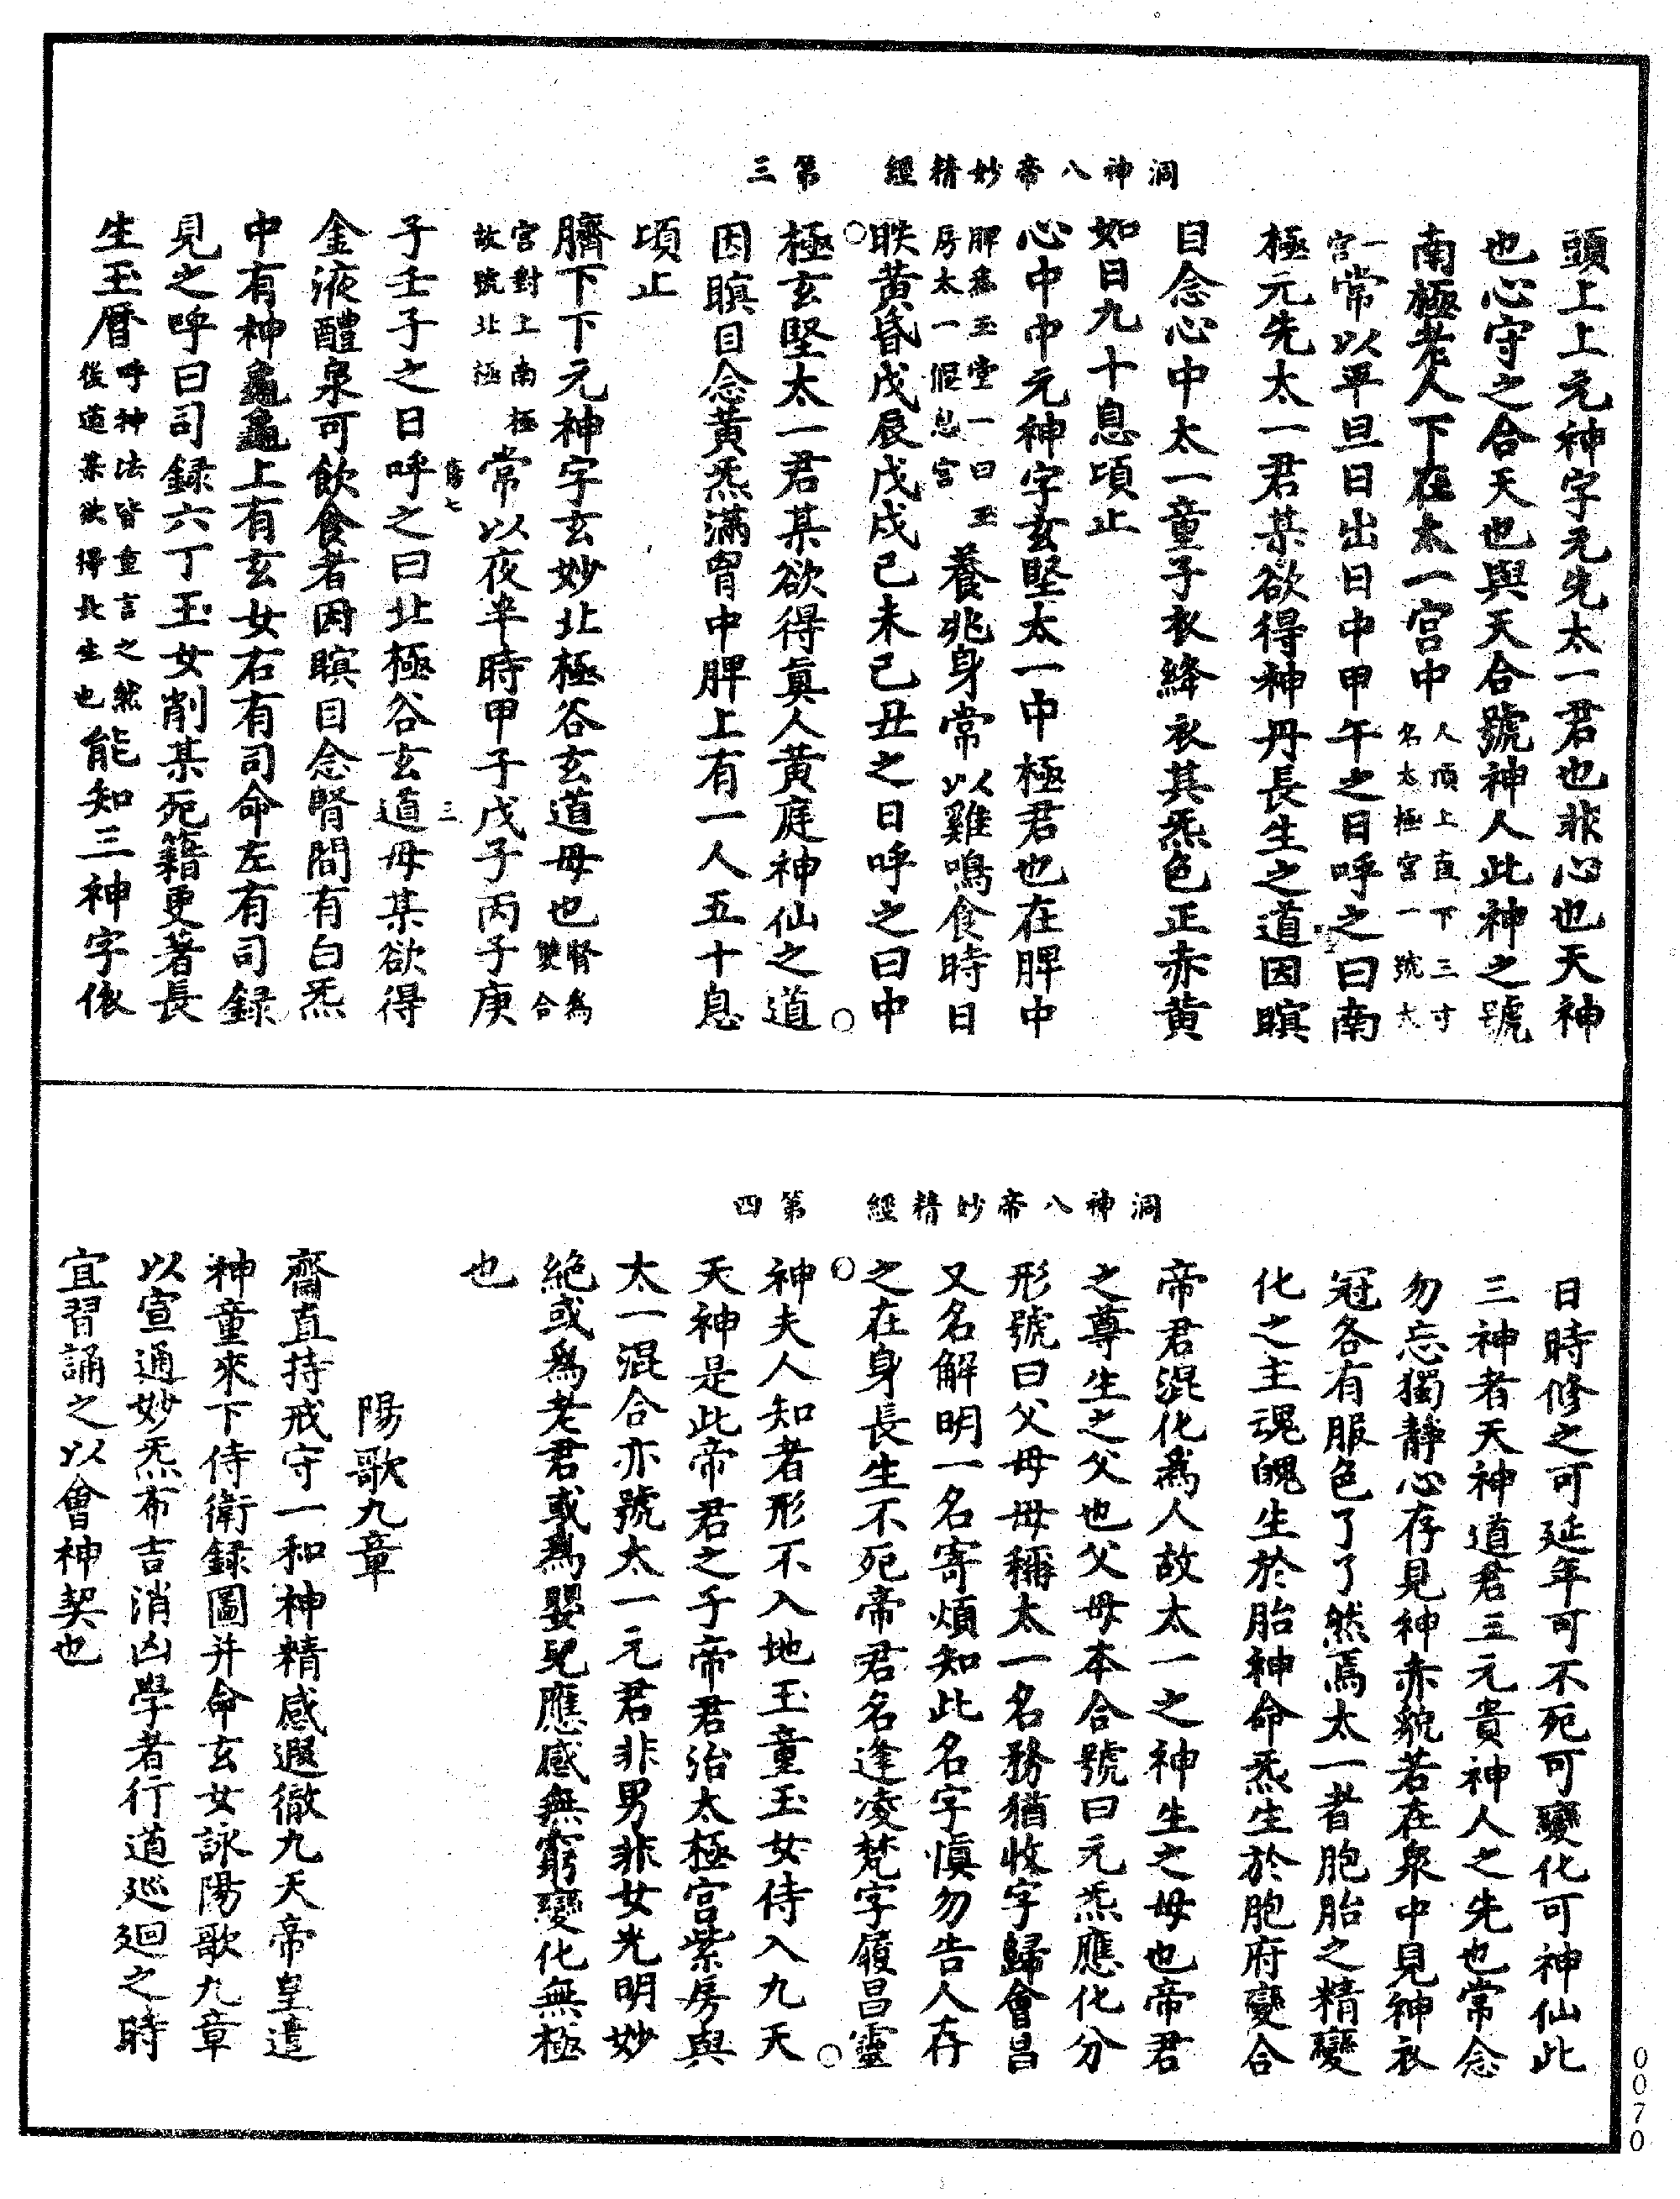 洞神八帝妙精經　第三
頭上上元神字元先太一君也非心也天神
也心守之合天也與天合號神人此神之號
南極老人下在太一宮中人頂上直下三寸名太極宮一號太
一宮常以平旦日出日中甲午之日呼之曰南
極元先太一君某欲得神丹長生之道因瞑
目念心中太一童子衣絳衣其炁色正赤黃
如日九十息頃止
心中中中元神字玄堅太一中極君也在脾中
脾為玉堂一曰玉房太一偃息宮養兆身常以雞鳴食時日
昳黃昏戊辰戊戌己未己丑之日呼之曰中
極玄堅太一君某欲得真人黃庭神仙之道
因瞑目念黃炁滿胷中脾上有一人五十息
頃止
臍下下下元神字玄妙北極谷玄道母也腎為雙合
宮對上南極故號北極常以夜半時甲子戊子丙子庚
舊七　三
子壬子之日呼之曰北極谷玄道母某欲得
金液醴泉可飲食者因瞑目念腎間有白炁
中有神龜龜上有玄女右有司命左有司録
見之呼曰司録六丁玉女削某死籍更著長
生玉曆呼神法皆重言之然後道某欲得長生也能知三神字依
洞神八帝妙精經　第四
日時修之可延年可不死可變化可神仙此
三神者天神道君三元貴神人之先也常念
勿忘獨靜心存見神赤貌若在泉中見神衣
冠各有服色了了然焉太一者胞胎之精變
化之主魂魄生於胎神命炁生於胞府變合
帝君混化為人故太一之神生之母也帝君
之尊生之父也父母本合號曰元炁應化分
形號曰父母母稱太一名務猶收字歸會昌
又名解明一名寄煩知此名字慎勿告人存
之在身長生不死帝君名逢凌梵字履昌靈
神夫人知者形不入地玉童玉女侍入九天
天神是此帝君之子帝君治太極宮紫房與
太一混合亦號太一元君非男非女光明妙
絶或為老君或為嬰兒應感無窮變化無極
也
陽歌九章
齋直持戒守一和神精感遐徹九天帝皇遣
神童來下侍衛録圖并命玄女詠陽歌九章
以宣通妙炁布吉消凶學者行道巡迴之時
宜習誦之以會神契也
0070